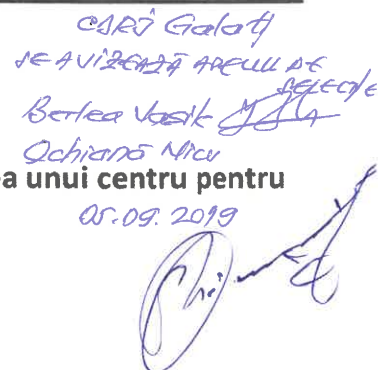 CDRJ Galați
SE AVIZEAZĂ APELUL DE
SELECȚIE
Berlea Vasile
Ochiană Nicu
a unui centru pentru
05.09.2019